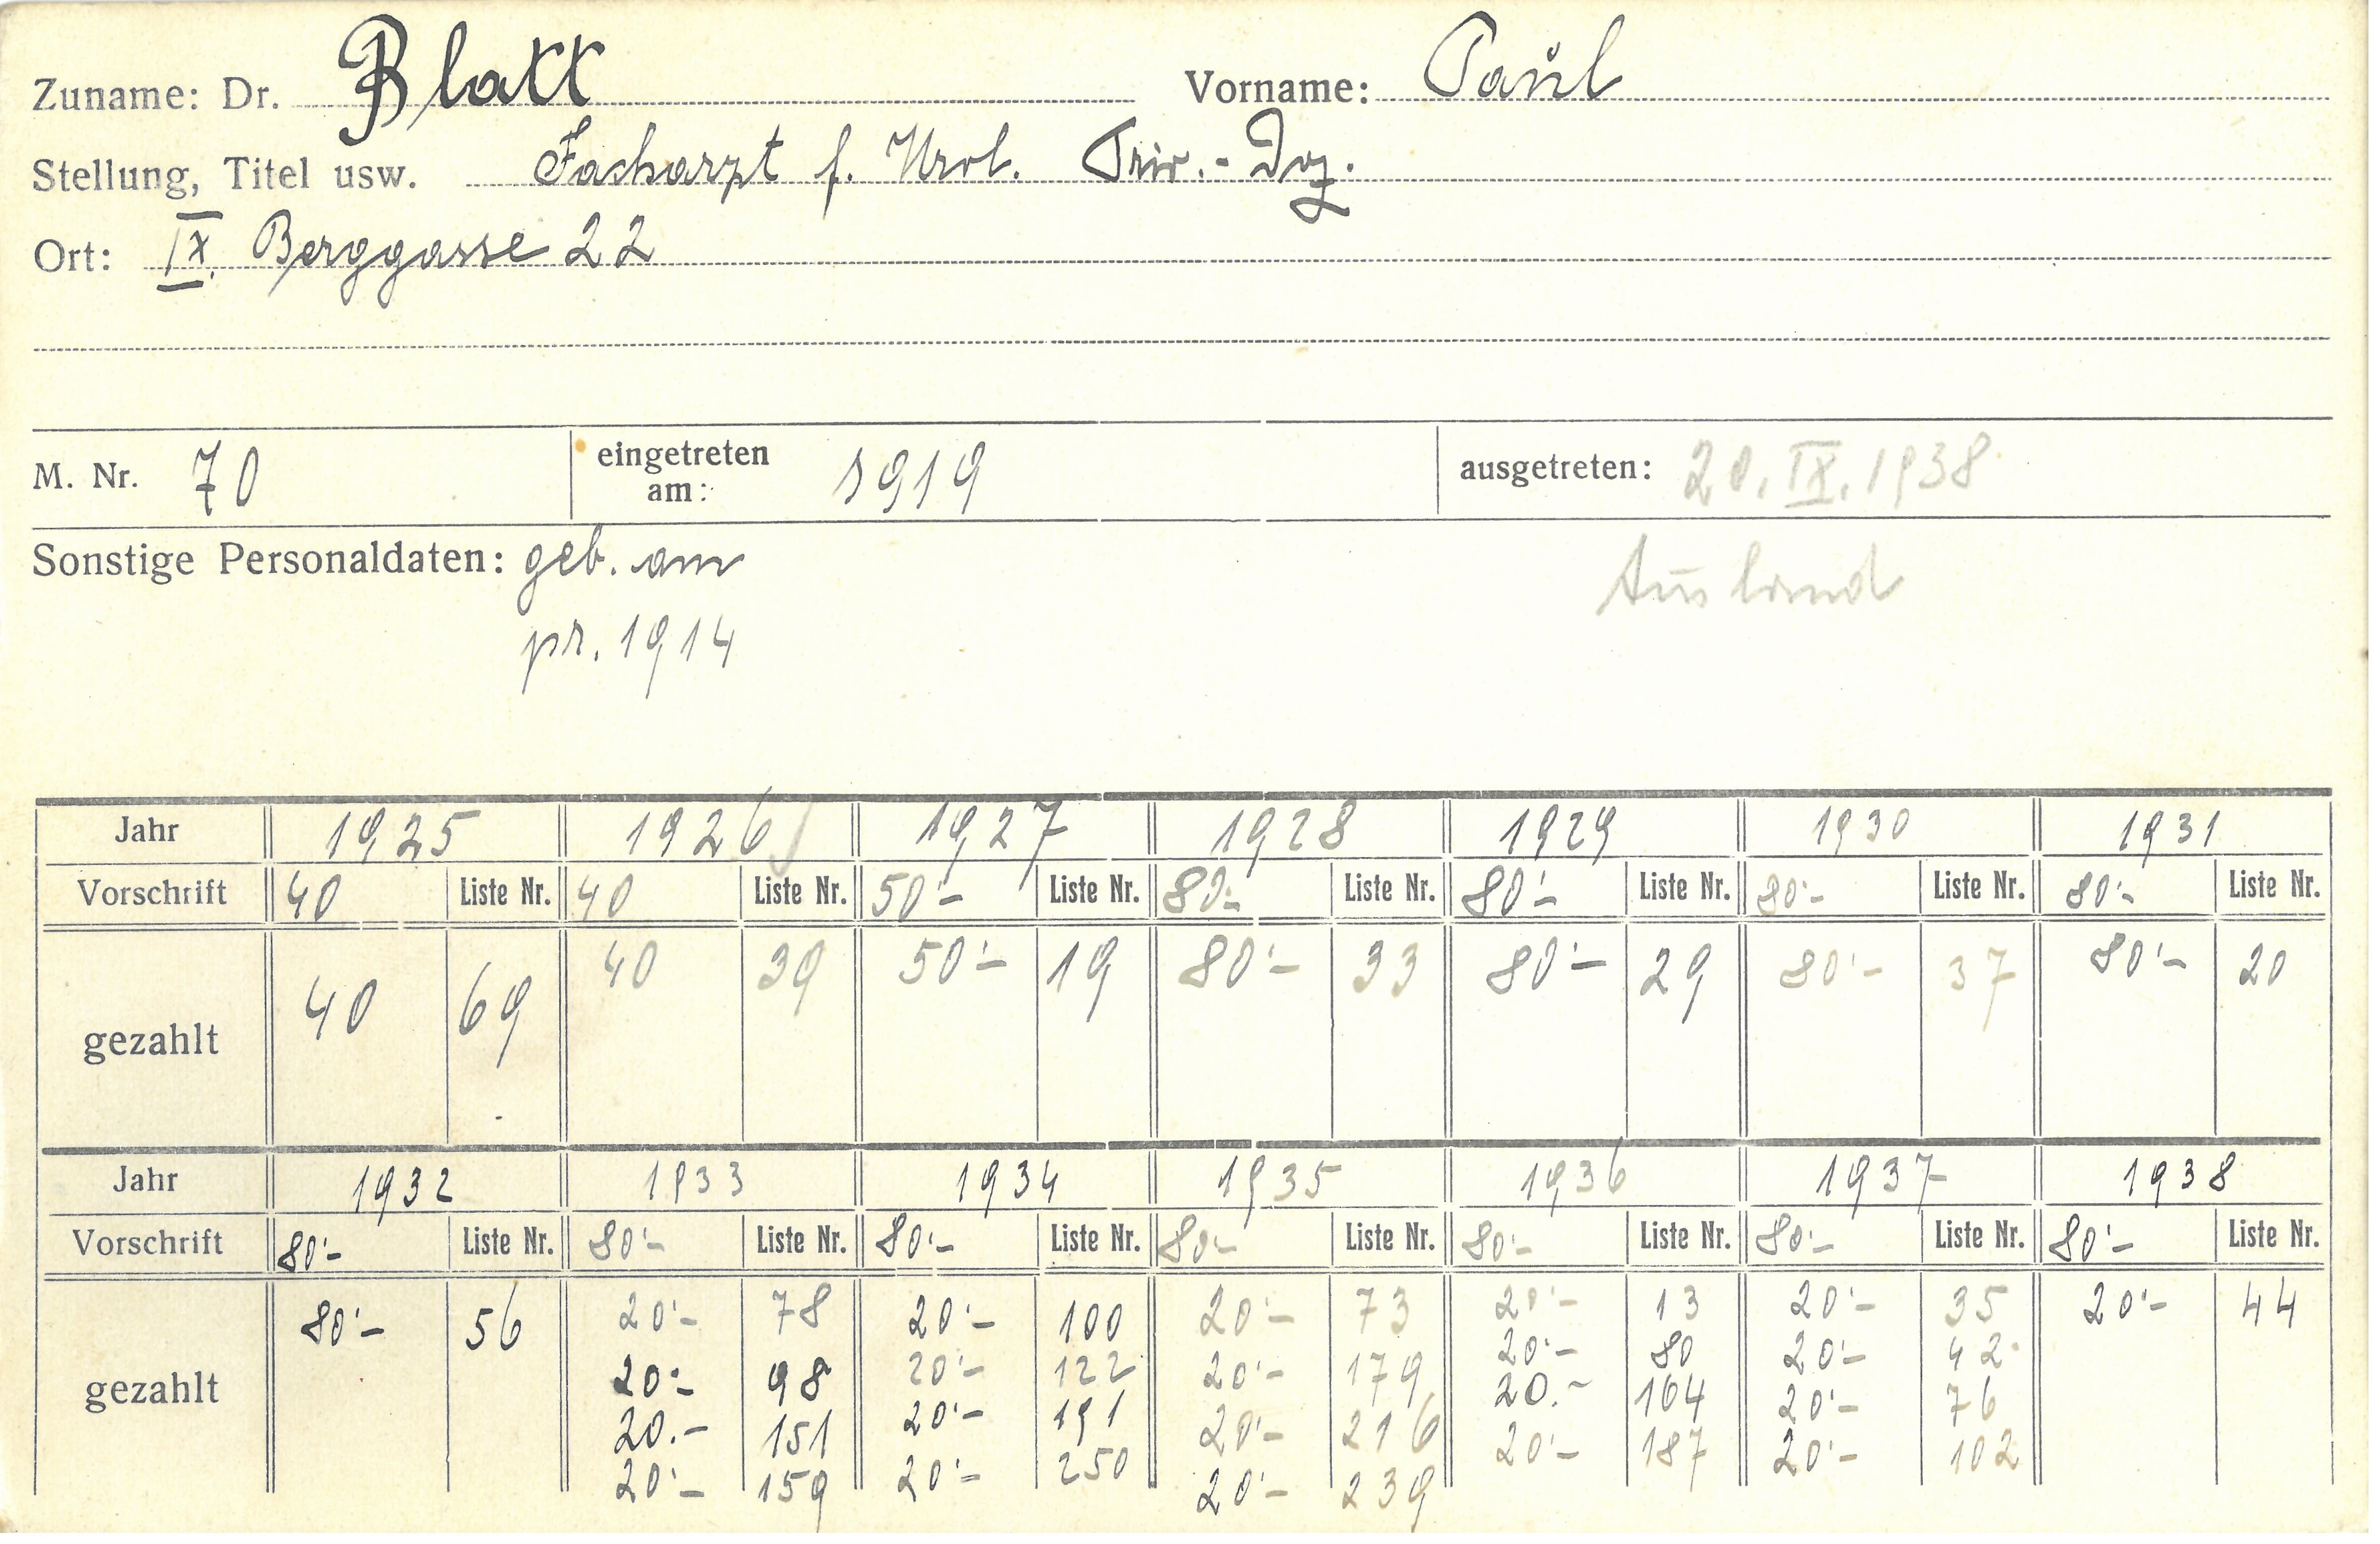 Zuname: Dr. Blatt Vorname: Paul
Stellung, Titel usw. Facharzt f. Urol. Priv.-Doz.
Ort: IX. Berggasse 22
M. Nr. 70 eingetreten am: 1919 ausgetreten: 20. IX. 1938
Sonstige Personaldaten: geb. am Ausland
pr. 1914
Jahr 1925 1926 1927 1928 1929 1930 1931
Vorschrift 40 Liste Nr. 40 Liste Nr. 50·– Liste Nr. 80·– Liste Nr. 80·– Liste Nr. 80·– Liste Nr. 80·– Liste Nr.
gezahlt 40 69 40 39 50·– 19 80·– 33 80·– 29 80·– 37 80·– 20
Jahr 1932 1933 1934 1935 1936 1937 1938
Vorschrift 80·– Liste Nr. 80·– Liste Nr. 80·– Liste Nr. 80·– Liste Nr. 80·– Liste Nr. 80·– Liste Nr. 80·– Liste Nr.
gezahlt 80·– 56 20·– 78 20·– 100 20·– 73 20·– 13 20·– 35 20·– 44
20·– 98 20·– 122 20·– 179 20·– 80 20·– 42
20.– 151 20·– 191 20·– 216 20.– 164 20·– 76
20·– 159 20·– 250 20·– 239 20·– 187 20·– 102